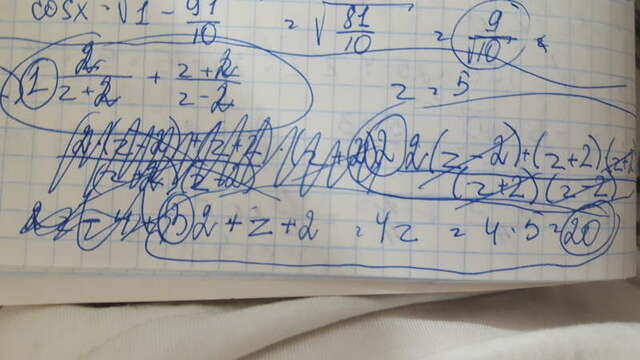 cosx = √1 - 91/10 = √81/10 = 9/√10
1 2/z+2 + z+2/z-2
z = 5
2 2·(z-2)+(z+2)(z+2/(z+2)(z-2)
3 2+z+2 = 4z = 4·5=20